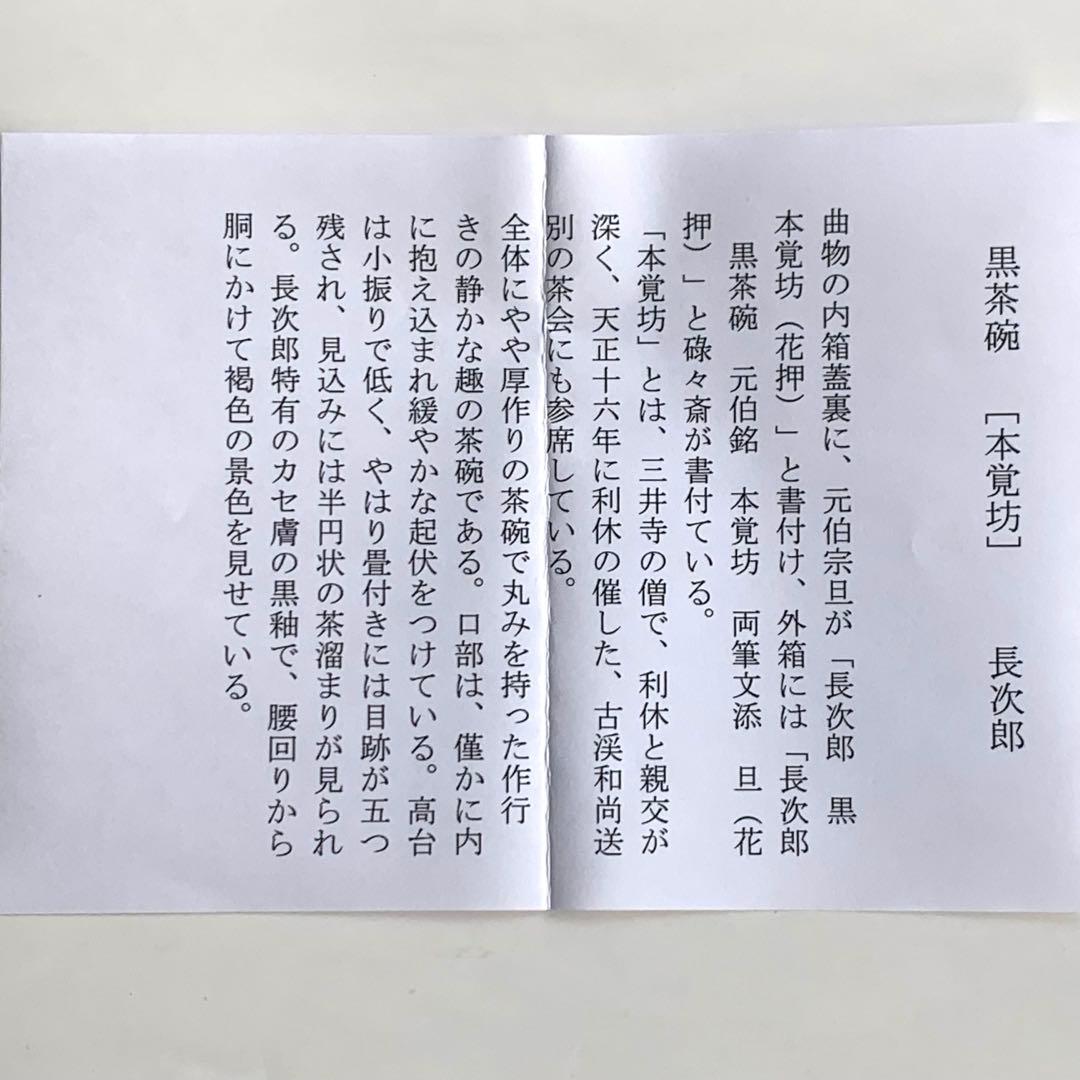 黒茶碗　［本覚坊］　　長次郎
曲物の内箱蓋裏に、元伯宗旦が「長次郎　黒
本覚坊（花押）」と書付け、外箱には「長次郎
黒茶碗　元伯銘　本覚坊　両筆文添　旦（花
押）」と碌々斎が書付ている。
「本覚坊」とは、三井寺の僧で、利休と親交が
深く、天正十六年に利休の催した、古渓和尚送
別の茶会にも参席している。
全体にやや厚作りの茶碗で丸みを持った作行
きの静かな趣の茶碗である。口部は、僅かに内
に抱え込まれ緩やかな起伏をつけている。高台
は小振りで低く、やはり畳付きには目跡が五つ
残され、見込みには半円状の茶溜まりが見られ
る。長次郎特有のカセ膚の黒釉で、腰回りから
胴にかけて褐色の景色を見せている。